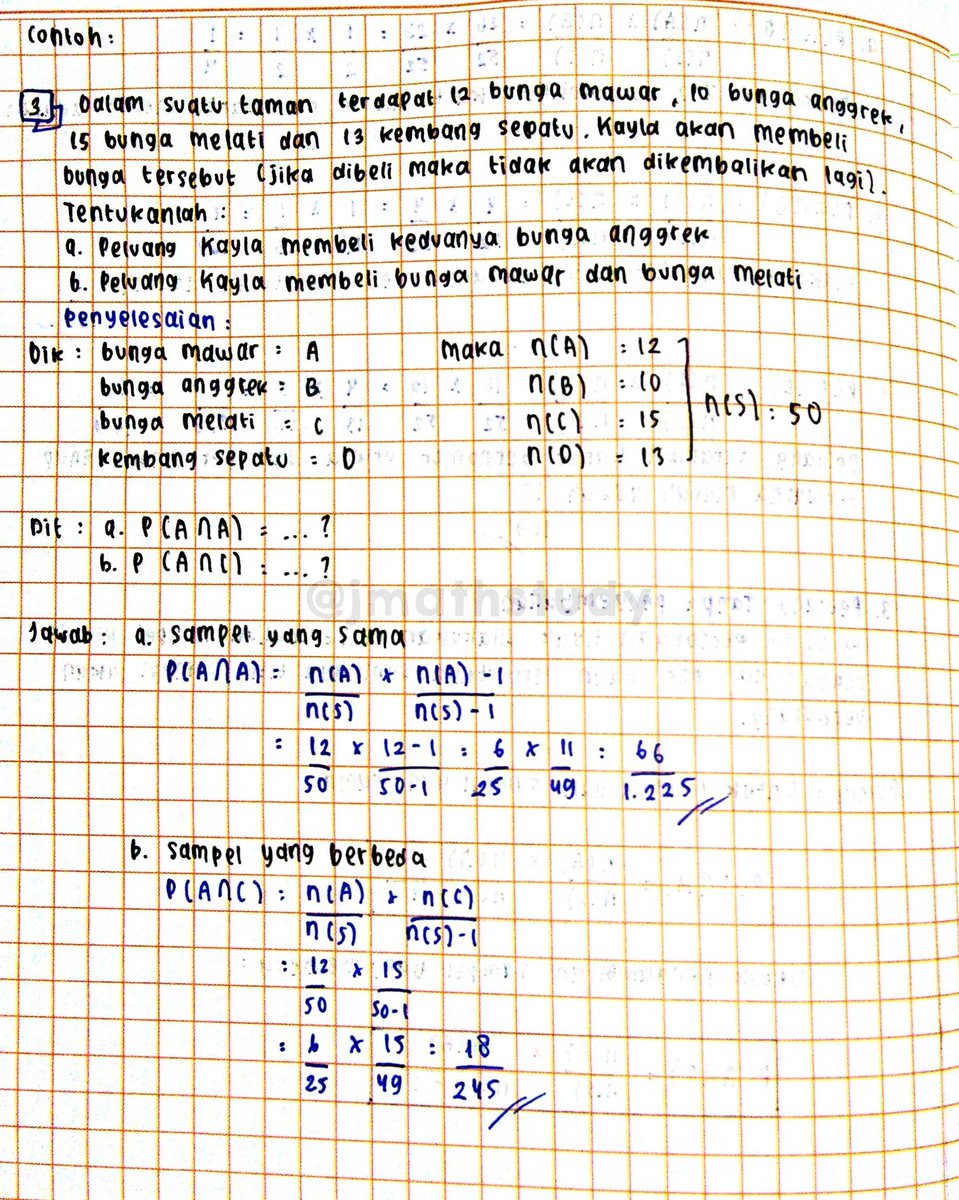 Contoh:
3. Dalam suatu taman terdapat 12 bunga mawar, 10 bunga anggrek,
15 bunga melati dan 13 kembang sepatu. Kayla akan membeli
bunga tersebut (jika dibeli maka tidak akan dikembalikan lagi).
Tentukanlah:
a. Peluang Kayla membeli keduanya bunga anggrek
b. Peluang Kayla membeli bunga mawar dan bunga melati
Penyelesaian:
Dik : bunga mawar : A maka n(A) : 12
bunga anggrek : B n(B) : 10
bunga melati : C n(C) : 15 n(S) : 50
kembang sepatu : D n(D) : 13
Dit : a. P(A∩A) = ... ?
b. P(A∩C) = ... ?
@jmathstudy
Jawab : a. sampel yang sama
P(A∩A) = n(A)/n(S) x n(A)-1/n(S)-1
= 12/50 x 12-1/50-1 = 6/25 x 11/49 = 66/1.225
b. sampel yang berbeda
P(A∩C) = n(A)/n(S) x n(C)/n(S)-1
= 12/50 x 15/50-1
= 6/25 x 15/49 = 18/245